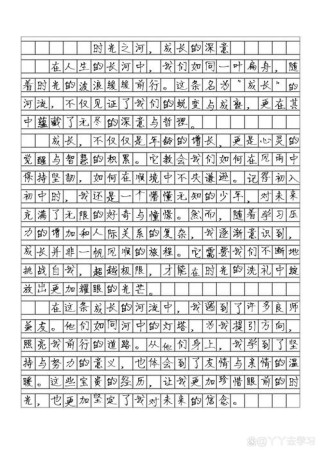 时光之河，成长的深意
在人生的长河中，我们如同一叶扁舟，随
着时光的波浪缓缓前行。这条名为“成长”的
河流，不仅见证了我们的蜕变与成熟，更在其
中蕴藏了无尽的深意与哲理。
成长，不仅仅是年龄的增长，更是心灵的
觉醒与智慧的积累。它教会我们如何在风雨中
保持坚韧，如何在顺境中不失谦逊。记得初入
初中时，我还是一个懵懂无知的少年，对未来
充满了无限的好奇与憧憬。然而，随着学习压
力的增加和人际关系的复杂，我逐渐意识到，
成长并非一帆风顺的旅程。它需要我们不断地
挑战自我，超越极限，才能在时光的洗礼中绽
放出更加耀眼的光芒。
在这条成长的河流中，我遇到了许多良师
益友。他们如同河中的灯塔，为我指引方向，
照亮我前行的道路。从他们身上，我学到了坚
持与努力的意义，也体会到了友情与亲情的温
暖。这些宝贵的经历，让我更加珍惜眼前的时
光，也更加坚定了我对未来的信念。